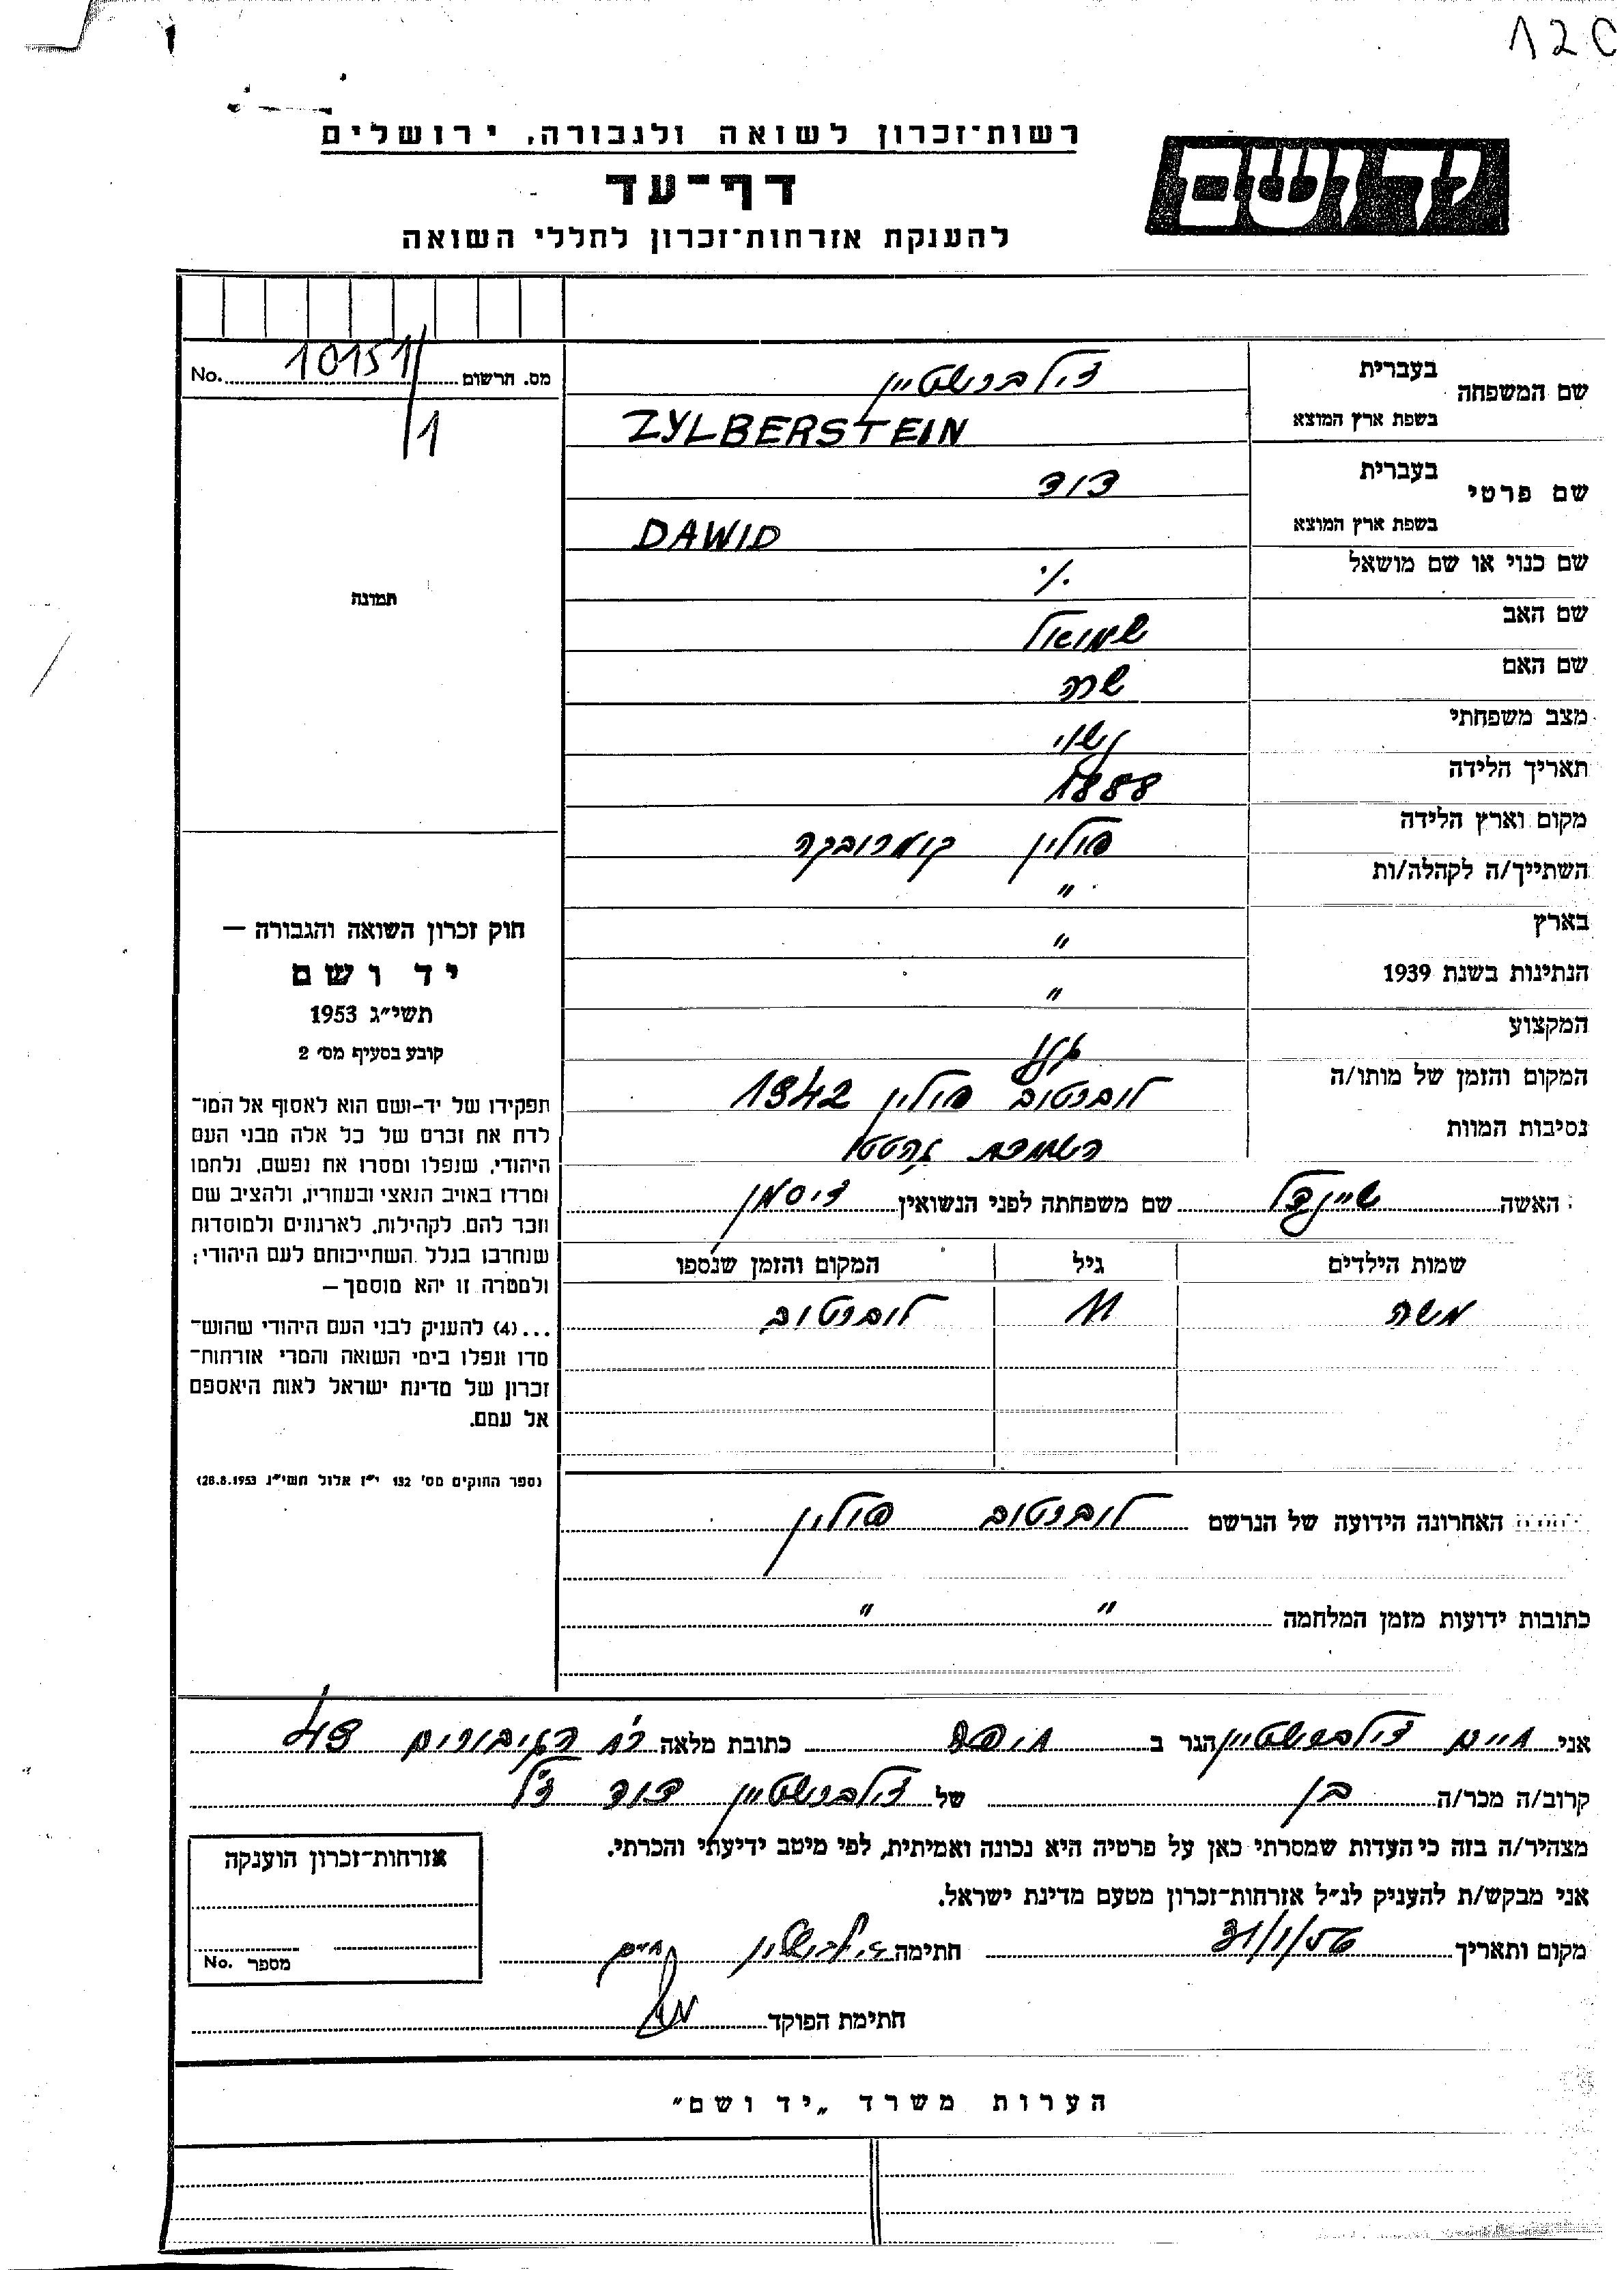 12C
יד ושם
רשות־זכרון לשואה ולגבורה, ירושלים
דף־עד
להענקת אזרחות־זכרון לחללי השואה
מס. הרשום 10151/1 No.
שם המשפחה בעברית זילברשטיין
בשפת ארץ המוצא ZYLBERSTEIN
שם פרטי בעברית דוד
בשפת ארץ המוצא DAWID
שם כנוי או שם מושאל ./.
שם האב שמואל
שם האם שרה
מצב משפחתי נשוי
תאריך הלידה 1888
מקום וארץ הלידה פולין קומרובקה
השתייך/ה לקהלה/ות "
בארץ "
הנתינות בשנת 1939 "
המקצוע
המקום והזמן של מותו/ה לוברטוב פולין 1942
נסיבות המוות השמדת הגטו
האשה שיינדל שם משפחתה לפני הנשואין זיסמן
שמות הילדים גיל המקום והזמן שנספו
משה 11 לוברטוב
האחרונה הידועה של הנרשם לוברטוב פולין
כתובות ידועות מזמן המלחמה " "
תמונה
חוק זכרון השואה והגבורה —
יד ושם
תשי״ג 1953
קובע בסעיף מס׳ 2
תפקידו של יד-ושם הוא לאסוף אל המו־
לדת את זכרם של כל אלה מבני העם
היהודי, שנפלו ומסרו את נפשם, נלחמו
ומרדו באויב הנאצי ובעוזריו, ולהציב שם
וזכר להם, לקהילות, לארגונים ולמוסדות
שנחרבו בגלל השתייכותם לעם היהודי;
ולמטרה זו יהא מוסמך—
...(4) להעניק לבני העם היהודי שהוש־
מדו ונפלו בימי השואה והמרי אזרחות־
זכרון של מדינת ישראל לאות היאספם
אל עמם.
(ספר החוקים מס׳ 132 י״ז אלול תשי״ג 28.8.1953)
אני חיים זילברשטיין הגר ב חיפה כתובת מלאה רח הגיבורים 49
קרוב/ה מכר/ה בן של זילברשטיין דוד ז״ל
מצהיר/ה בזה כי העדות שמסרתי כאן על פרטיה היא נכונה ואמיתית, לפי מיטב ידיעתי והכרתי.
אני מבקש/ת להעניק לנ״ל אזרחות־זכרון מטעם מדינת ישראל.
מקום ותאריך 31/1/56 חתימה זילברשטיין חיים
חתימת הפוקד
אזרחות־זכרון הוענקה
מספר No.
הערות משרד „יד ושם״